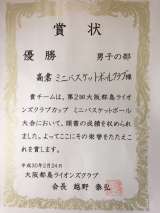 賞状
優勝 男子の部
高倉ミニバスケットボールクラブ様
貴チームは、第2回大阪都島ライ
オンズクラブカップ ミニバスケットボール
大会において、頭書の成績を収められ
ました。よってここにその栄誉をたたえこ
れを賞します。
平成30年2月24日
大阪都島ライオンズクラブ
会長 越野 泰弘